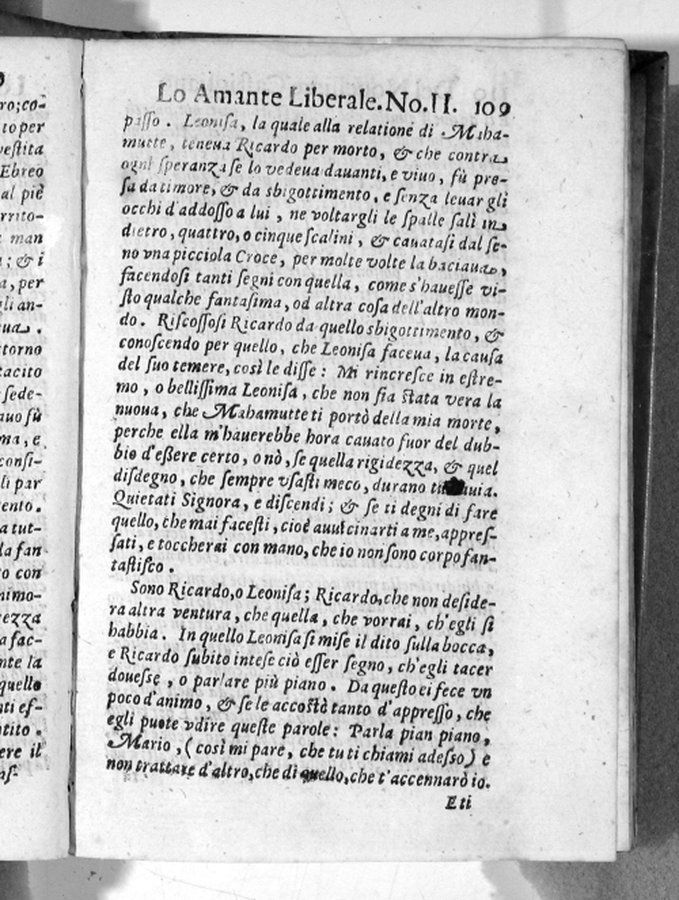 ro;co-
to per
vestita
Ebreo
al piè
rrito-
man
a; & i
a, per
gli an-
eua.
torno
tacito
sede-
auo fù
ma, e
consi-
li par
ento.
a tut-
da fan
to con
nimo-
rezza
a fac-
nte la
quello
nti ef-
ntito.
ere il
Lo Amante Liberale. No. II. 109
passo. Leonisa, la quale alla relatione di Maha-
mutte, teneua Ricardo per morto, & che contra
ogni speranza se lo vedeua dauanti, e viuo, fù pre-
sa da timore, & da sbigottimento, e senza leuar gli
occhi d'addosso a lui, ne voltargli le spalle salì in
dietro, quattro, o cinque scalini, & cauatasi dal se-
no vna picciola Croce, per molte volte la baciaua,
facendosi tanti segni con quella, come s'hauesse vi-
sto qualche fantasima, od altra cosa dell'altro mon-
do. Riscossosi Ricardo da quello sbigottimento, &
conoscendo per quello, che Leonisa faceua, la causa
del suo temere, così le disse: Mi rincresce in estre-
mo, o bellissima Leonisa, che non sia stata vera la
nuoua, che Mahamutte ti portò della mia morte,
perche ella m'hauerebbe hora cauato fuor del dub-
bio d'essere certo, o nò, se quella rigidezza, & quel
disdegno, che sempre vsasti meco, durano tuttauia.
Quietati Signora, e discendi; & se ti degni di fare
quello, che mai facesti, cioè auuicinarti a me, appres-
sati, e toccherai con mano, che io non sono corpo fan-
tastisco.
Sono Ricardo, o Leonisa; Ricardo, che non deside-
ra altra ventura, che quella, che vorrai, ch'egli si
habbia. In quello Leonisa si mise il dito sulla bocca,
e Ricardo subito intese ciò esser segno, ch'egli tacer
douesse, o parlare più piano. Da questo ei fece vn
poco d'animo, & se le accostò tanto d'appresso, che
egli puote vdire queste parole: Parla pian piano,
Mario, (così mi pare, che tu ti chiami adesso) e
non trattare d'altro, che di quello, che t'accennarò io.
E ti